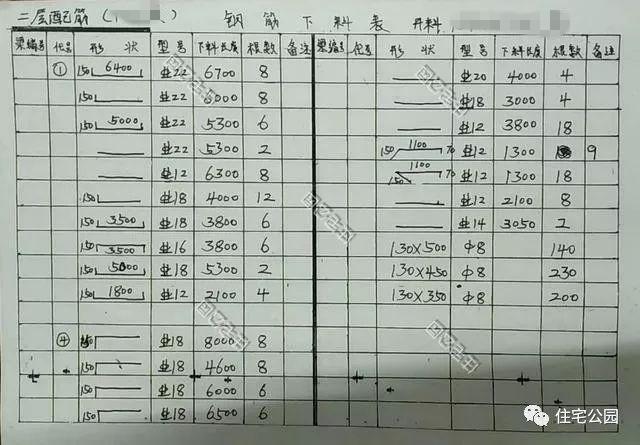 三层配筋( 钢筋下料表 开料
梁编号 代号 形状 型号 下料长度 根数 备注 梁编号 代号 形状 型号 下料长度 根数 备注
① 150 6400 业22 6700 8 业20 4000 4
150 业22 6000 8 业18 3000 4
150 5000 业22 5300 6 业12 3800 18
业22 5300 2 150 1100 70 业12 1300 9
业12 6300 8 150 1100 70 业12 1300 18
150 业18 4000 12 业12 2100 8
150 3500 业18 3800 6 业14 3050 2
150 3500 业16 3800 6 130×500 Φ8 140
150 5000 业18 5300 2 130×450 Φ8 230
150 1800 业12 2100 4 130×350 Φ8 200
④ 150 业18 8000 8
150 业18 4600 8
150 业18 6000 6
150 业18 6500 6
住宅公园